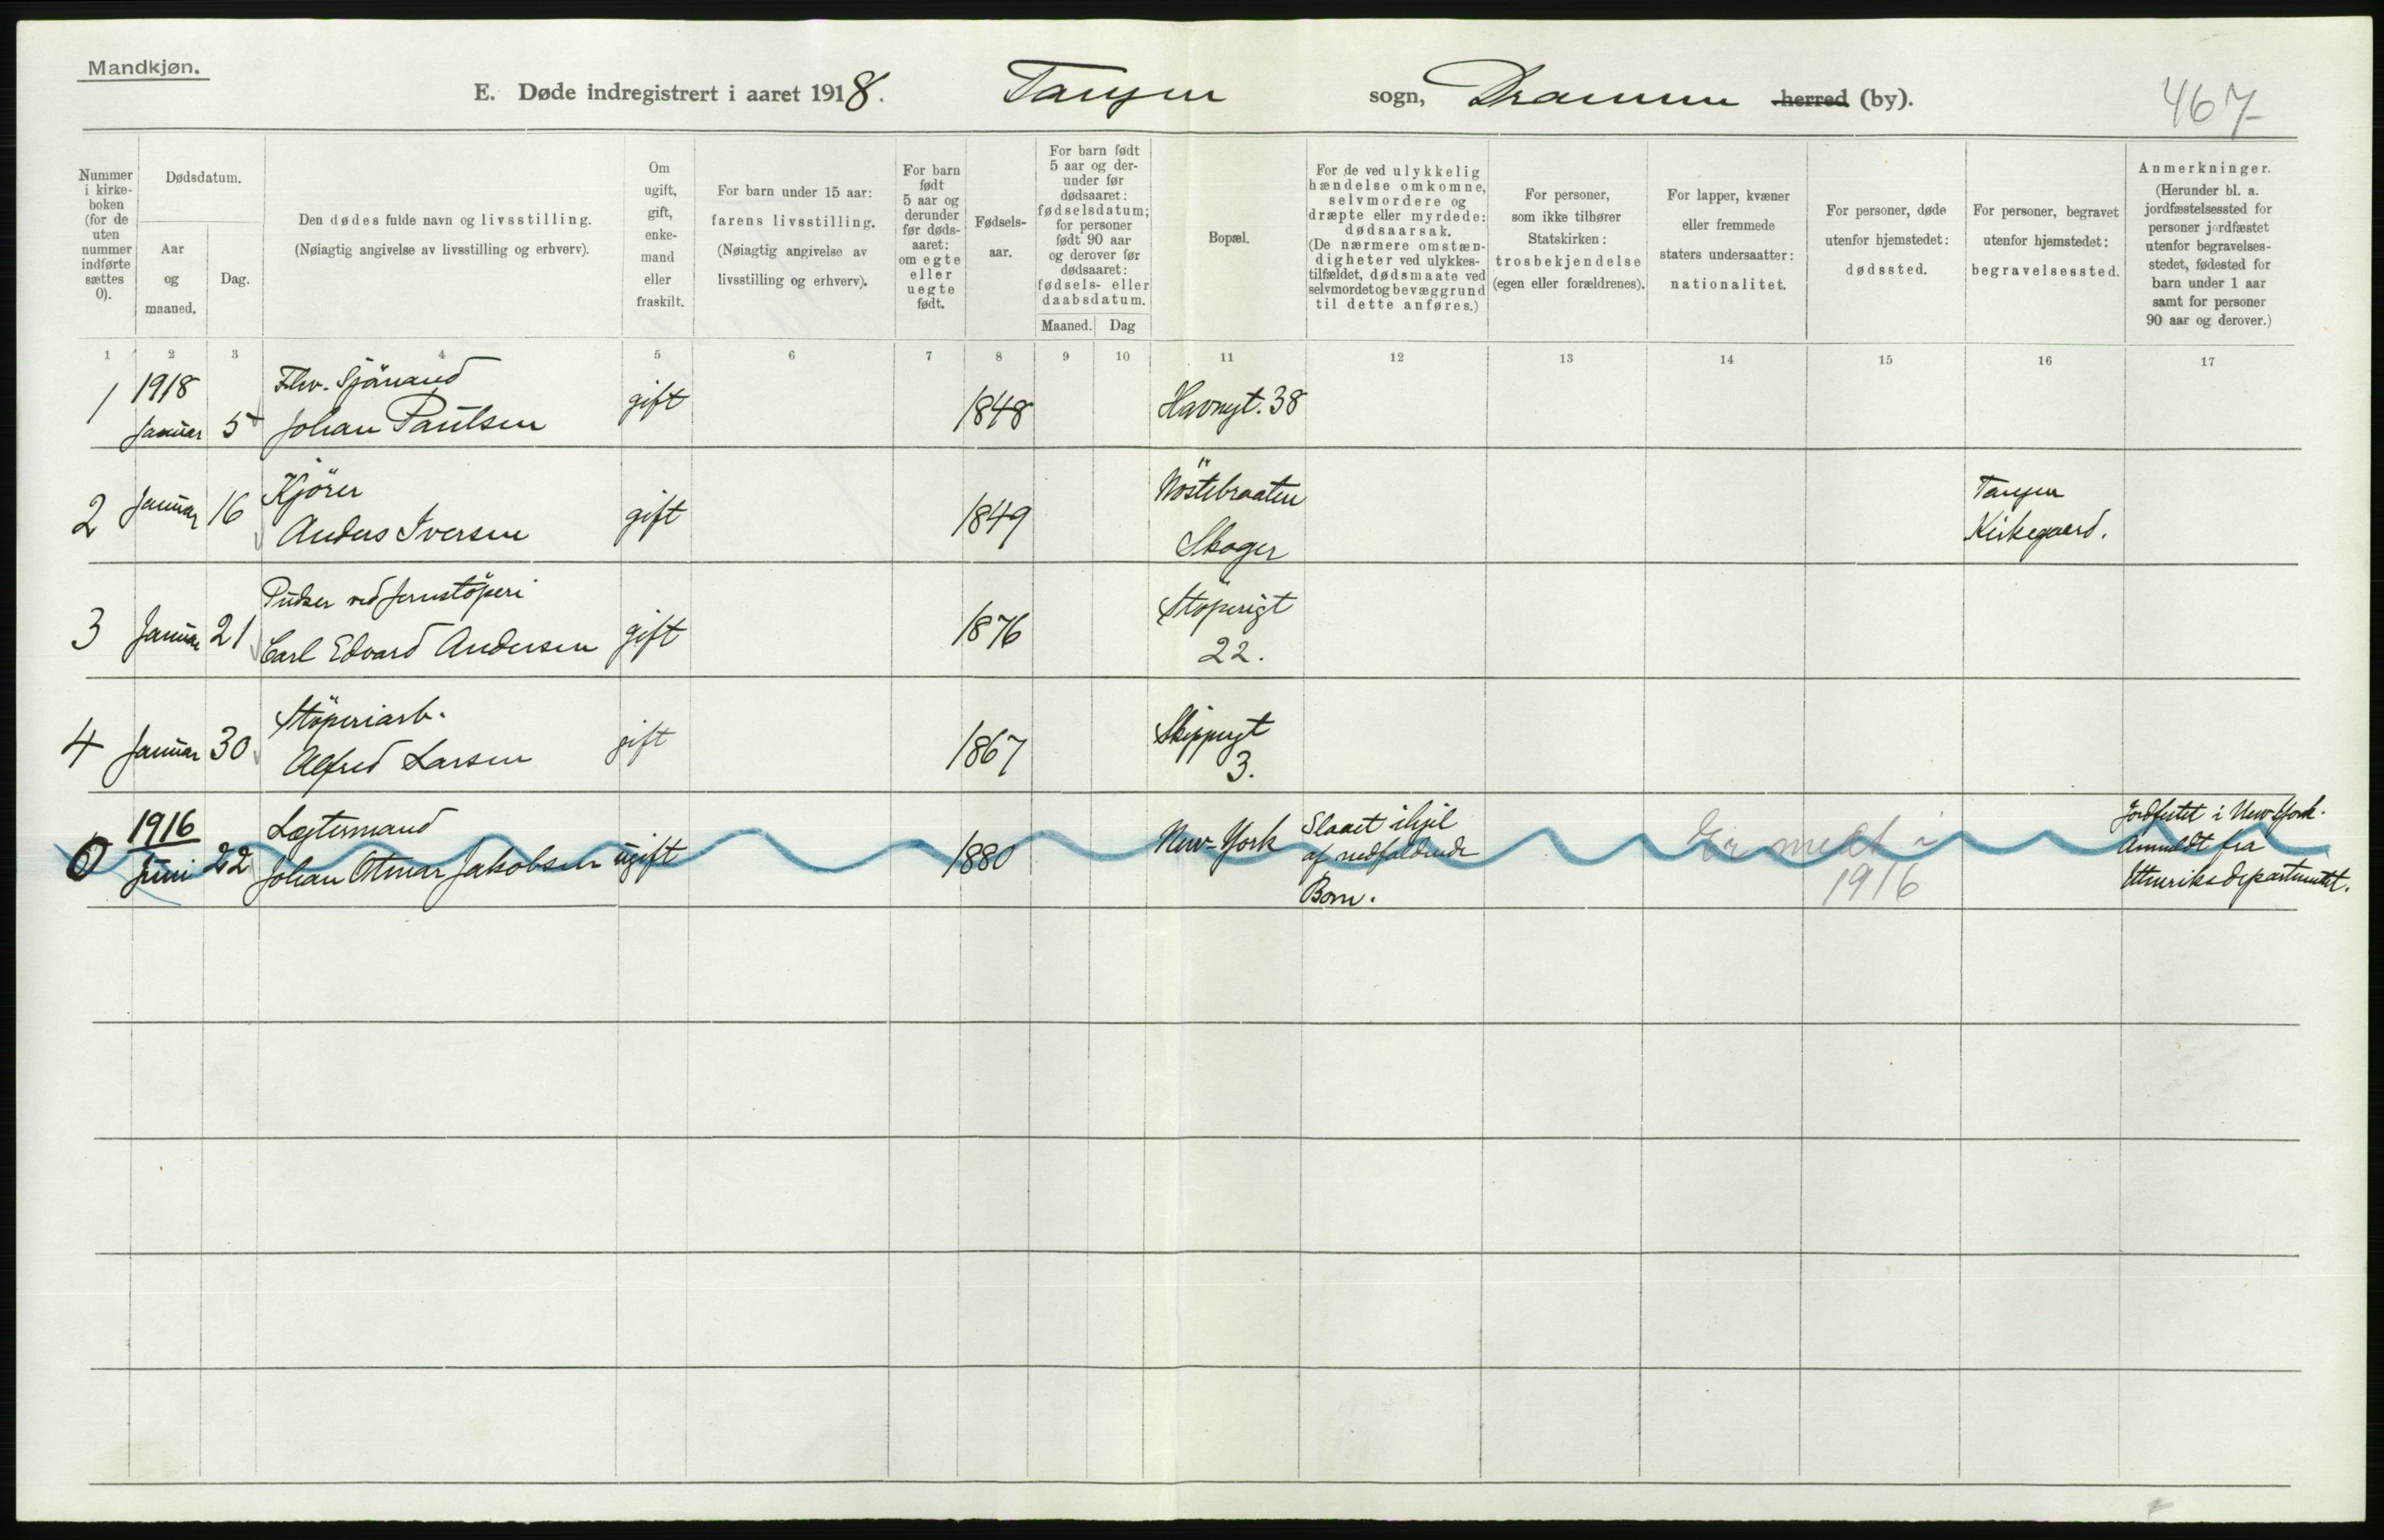 Mandkjøn.
E. Døde indregistrert i aaret 1918. Tangen sogn, Drammen herred (by).
467
Nummer i kirke- boken (for de uten nummer indførte sættes 0).
Dødsdatum.
Aar og maaned.
Dag.
Den dødes fulde navn og livsstilling.
(Nøiagtig angivelse av livsstilling og erhverv).
Om ugift, gift, enke- mand eller fraskilt.
For barn under 15 aar:
farens livsstilling.
(Nøiagtig angivelse av livsstilling og erhverv).
For barn født 5 aar og derunder før døds- aaret: om egte eller uegte født.
Fødsels- aar.
For barn født 5 aar og der- under før dødsaaret: fødselsdatum; for personer født 90 aar og derover før dødsaaret: fødsels- eller daabsdatum.
Maaned. Dag
Bopæl.
For de ved ulykkelig hændelse omkomne, selvmordere og dræpte eller myrdede: dødsaarsak.
(De nærmere omstæn- digheter ved ulykkes- tilfældet, dødsmaate ved selvmordet og bevæggrund til dette anføres.)
For personer, som ikke tilhører Statskirken: trosbekjendelse (egen eller forældrenes).
For lapper, kvæner eller fremmede staters undersaatter: nationalitet.
For personer, døde utenfor hjemstedet: dødssted.
For personer, begravet utenfor hjemstedet: begravelsessted.
Anmerkninger.
(Herunder bl. a. jordfæstelsessted for personer jordfæstet utenfor begravelses- stedet, fødested for barn under 1 aar samt for personer 90 aar og derover.)
1 2 3 4 5 6 7 8 9 10 11 12 13 14 15 16 17
1918 Fhv. Sjömand
1 Januar 5 Johan Paulsen gift 1848 Havnegt. 38
Kjörer Nöstebraaten Tangen
2 Januar 16 Anders Iversen gift 1849 Skoger Kirkegaard.
Pudser ved Jernstöperi Stöperigt
3 Januar 21 Carl Edvard Andersen gift 1876 22.
Stöperiarb. Skippergt
4 Januar 30 Alfred Larsen gift 1867 3.
1916 Lægtermand Slaaet ihjel Jordfestet i New-York.
0 Juni 22 Johan Otmar Jakobsen ugift 1880 New-York af nedfaldende Er medt i Anmeldt fra
Bom. 1916 Utenriksdepartmentet.